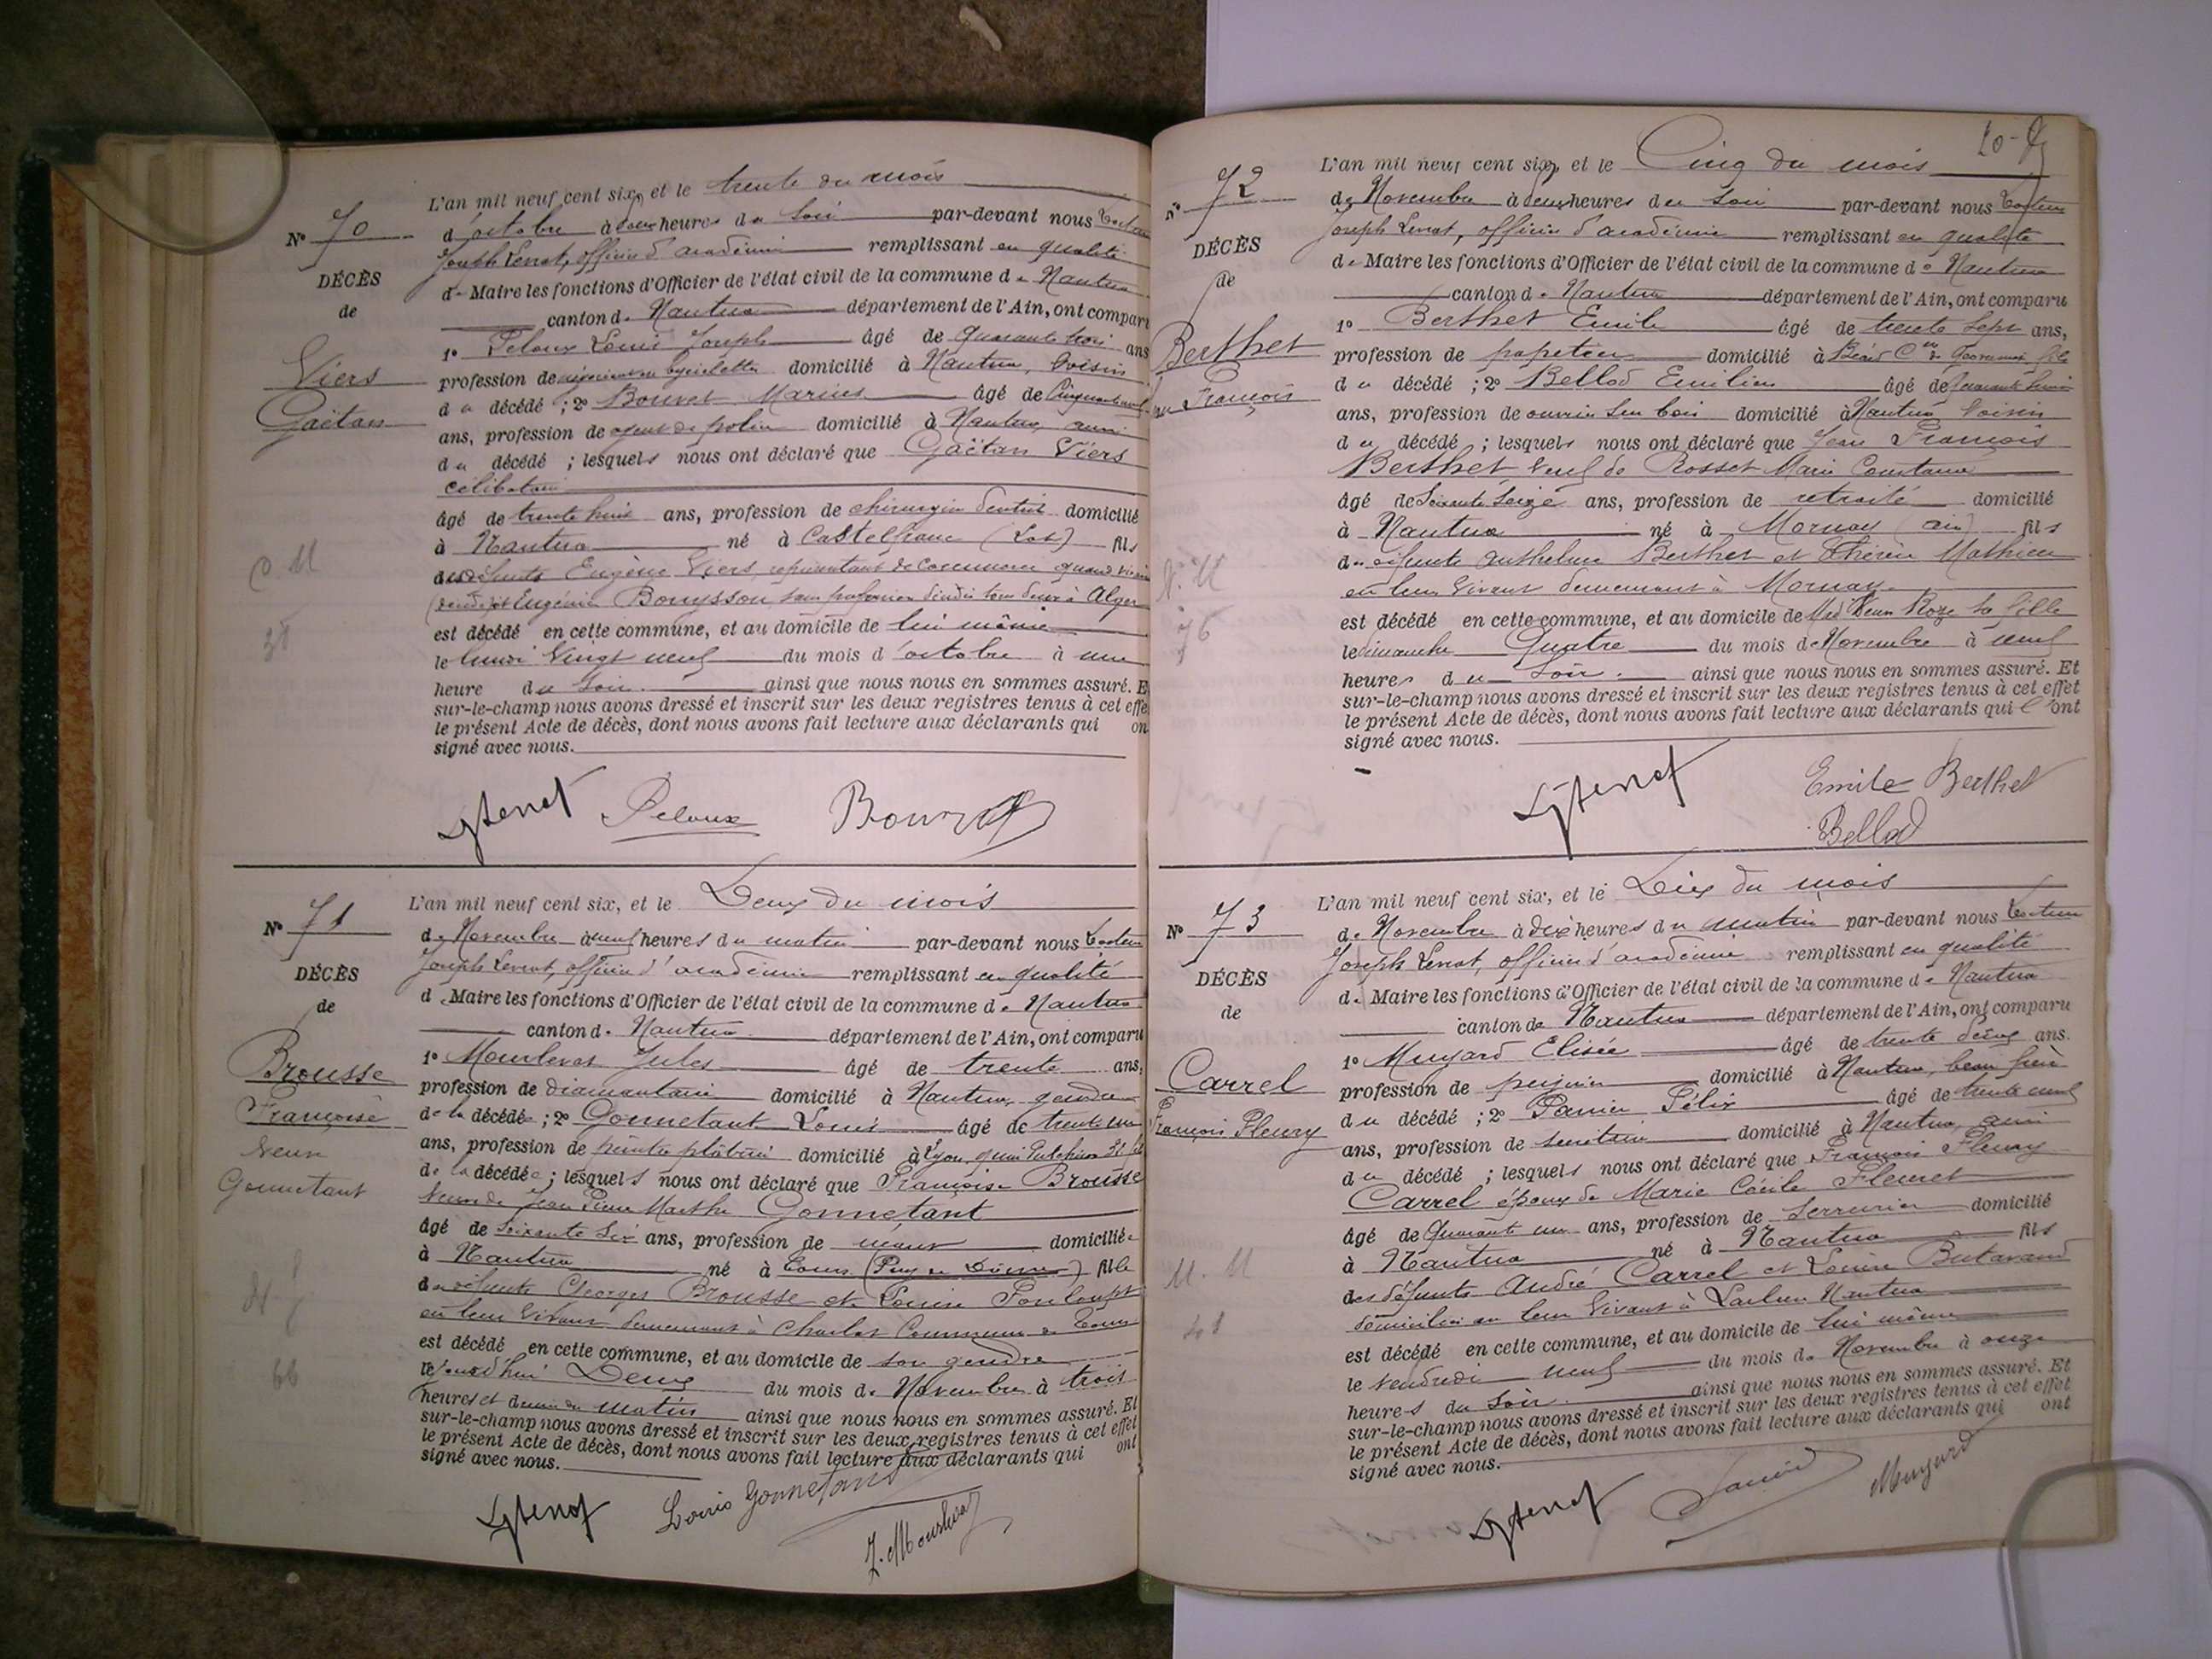 N° 70
DÉCÈS
de
Viers
Gaëtan
C. M
38
L'an mil neuf cent six, et le trente du mois
d'octobre à deux heures du soir par-devant nous Docteur
Joseph Levrat, officier d'académie remplissant en qualité
de Maire les fonctions d'Officier de l'état civil de la commune de Nantua
canton de Nantua département de l'Ain, ont comparu
1° Peloux Louis Joseph âgé de quarante trois ans
profession de bicyclettes domicilié à Nantua, voisin
du décédé ; 2° Bouvet Marius âgé de
ans, profession de agent de police domicilié à Nantua, ami
du décédé ; lesquels nous ont déclaré que Gaëtan Viers
célibataire
âgé de trente huit ans, profession de chirurgien dentiste domicilié
à Nantua né à Castelfranc (Lot) fils
des défunts Eugène Viers, représentant de commerce quand vivait
et Eugénie Bouysson sans profession décédés tous deux à Alger
est décédé en cette commune, et au domicile de lui même
le lundi vingt neuf du mois d'octobre à une
heure du soir ainsi que nous nous en sommes assuré. E
sur-le-champ nous avons dressé et inscrit sur les deux registres tenus à cet effe
le présent Acte de décès, dont nous avons fait lecture aux déclarants qui on
signé avec nous.
Peloux Bouvet
N° 71
DÉCÈS
de
Brousse
Françoise
veuve
Gonnetant
66
L'an mil neuf cent six, et le Deux du mois
de Novembre à neuf heures du matin par-devant nous Docteur
Joseph Levrat, officier d'académie remplissant en qualité
de Maire les fonctions d'Officier de l'état civil de la commune de Nantua
canton de Nantua département de l'Ain, ont comparu
1° Mourlevat Jules âgé de trente ans,
profession de diamantaire domicilié à Nantua, gendre
de la décédée ; 2° Gonnetant Louis âgé de trente un
ans, profession de peintre plâtrier domicilié à Lyon, quai
de la décédée ; lesquels nous ont déclaré que Françoise Brousse
veuve de Jean Pierre Marthe Gonnetant
âgé de soixante six ans, profession de néant domiciliée
à Nantua né à (Puy de Dôme) fille
de défunts Georges Brousse et Louise
en leur vivant demeurant à Commune de
est décédé en cette commune, et au domicile de son gendre
le jourd'hui Deux du mois de Novembre à trois
heures et demie du matin ainsi que nous nous en sommes assuré. Et
sur-le-champ nous avons dressé et inscrit sur les deux registres tenus à cet effet
le présent Acte de décès, dont nous avons fait lecture aux déclarants qui ont
signé avec nous.
Louis Gonnetant
J. Mourlevat
N° 72
DÉCÈS
de
Berthet
Jean François
V. M
76
L'an mil neuf cent six, et le Cinq du mois
de Novembre à deux heures du soir par-devant nous Docteur
Joseph Levrat, officier d'académie remplissant en qualité
de Maire les fonctions d'Officier de l'état civil de la commune de Nantua
canton de Nantua département de l'Ain, ont comparu
1° Berthet Emile âgé de trente sept ans,
profession de papetier domicilié à fils
du décédé ; 2° Bellod Emilien âgé de quarante huit
ans, profession de ouvrier sur bois domicilié à Nantua voisin
du décédé ; lesquels nous ont déclaré que Jean François
Berthet veuf de Rosset Marie Constance
âgé de soixante seize ans, profession de retraité domicilié
à Nantua né à Mornay (ain) fils
de défunts Anthelme Berthet et Thérèse Mathieu
en leur vivant demeurant à Mornay
est décédé en cette commune, et au domicile de Roze sa fille
le dimanche Quatre du mois de Novembre à neuf
heures du soir ainsi que nous nous en sommes assuré. Et
sur-le-champ nous avons dressé et inscrit sur les deux registres tenus à cet effet
le présent Acte de décès, dont nous avons fait lecture aux déclarants qui l'ont
signé avec nous.
Emile Berthet
Bellod
N° 73
DÉCÈS
de
Carrel
François Fleury
M. M
41
L'an mil neuf cent six, et le Dix du mois
de Novembre à dix heures du matin par-devant nous Docteur
Joseph Levrat, officier d'académie remplissant en qualité
de Maire les fonctions d'Officier de l'état civil de la commune de Nantua
canton de Nantua département de l'Ain, ont comparu
1° Muyard Elisée âgé de trente deux ans.
profession de domicilié à Nantua, beau frère
du décédé ; 2° Panier Félix âgé de trente neuf
ans, profession de domicilié à Nantua, ami
du décédé ; lesquels nous ont déclaré que François Fleury
Carrel époux de Marie Cécile Fleuret
âgé de Quarante un ans, profession de serrurier domicilié
à Nantua né à Nantua fils
des défunts André Carrel et Louise Butavand
domiciliés en leur vivant à Nantua
est décédé en cette commune, et au domicile de lui même
le vendredi neuf du mois de Novembre à onze
heures du soir ainsi que nous nous en sommes assuré. Et
sur-le-champ nous avons dressé et inscrit sur les deux registres tenus à cet effet
le présent Acte de décès, dont nous avons fait lecture aux déclarants qui ont
signé avec nous.
Muyard